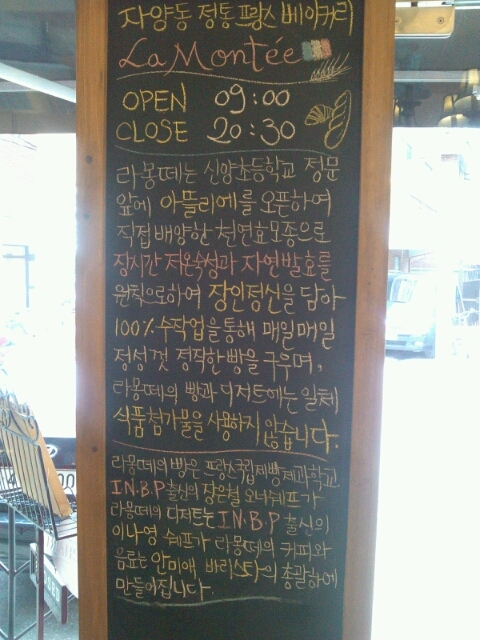 자양동 정통 프랑스 베이커리
La Montée
OPEN 09:00
CLOSE 20:30
라몽떼는 신양초등학교 정문
앞에 아뜰리에를 오픈하여
직접 배양한 천연효모종으로
장시간 저온숙성과 자연발효를
원칙으로하여 장인정신을 담아
100% 수작업을 통해 매일매일
정성껏 정직한 빵을 구우며,
라몽떼의 빵과 디저트에는 일체
식품첨가물을 사용하지 않습니다.
라몽떼의 빵은 프랑스국립제빵제과학교
I.N.B.P 출신의 장은철 오너쉐프가
라몽떼의 디저트는 I.N.B.P 출신의
이나영 쉐프가 라몽떼의 커피와
음료는 안미애 바리스타의 총괄하에
만들어집니다.